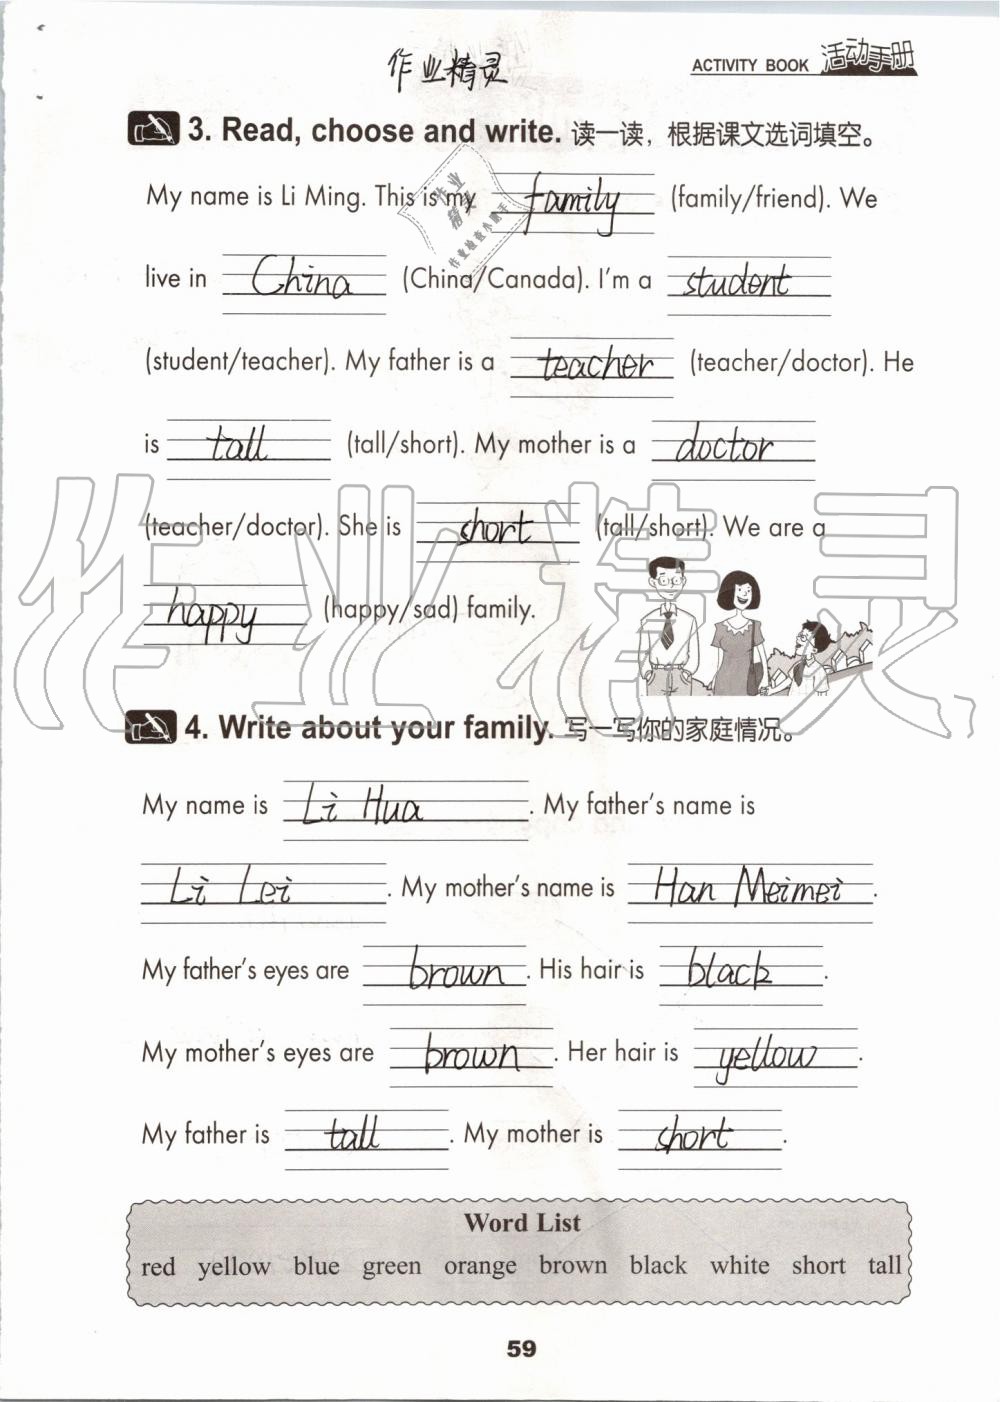 作业精灵
ACTIVITY BOOK 活动手册
3. Read, choose and write. 读一读，根据课文选词填空。
My name is Li Ming. This is my family (family/friend). We
live in China (China/Canada). I'm a student
(student/teacher). My father is a teacher (teacher/doctor). He
is tall (tall/short). My mother is a doctor
(teacher/doctor). She is short (tall/short). We are a
happy (happy/sad) family.
作业精灵
4. Write about your family. 写一写你的家庭情况。
My name is Li Hua. My father's name is
Li Lei. My mother's name is Han Meimei.
My father's eyes are brown. His hair is black.
My mother's eyes are brown. Her hair is yellow.
My father is tall. My mother is short.
Word List
red yellow blue green orange brown black white short tall
59